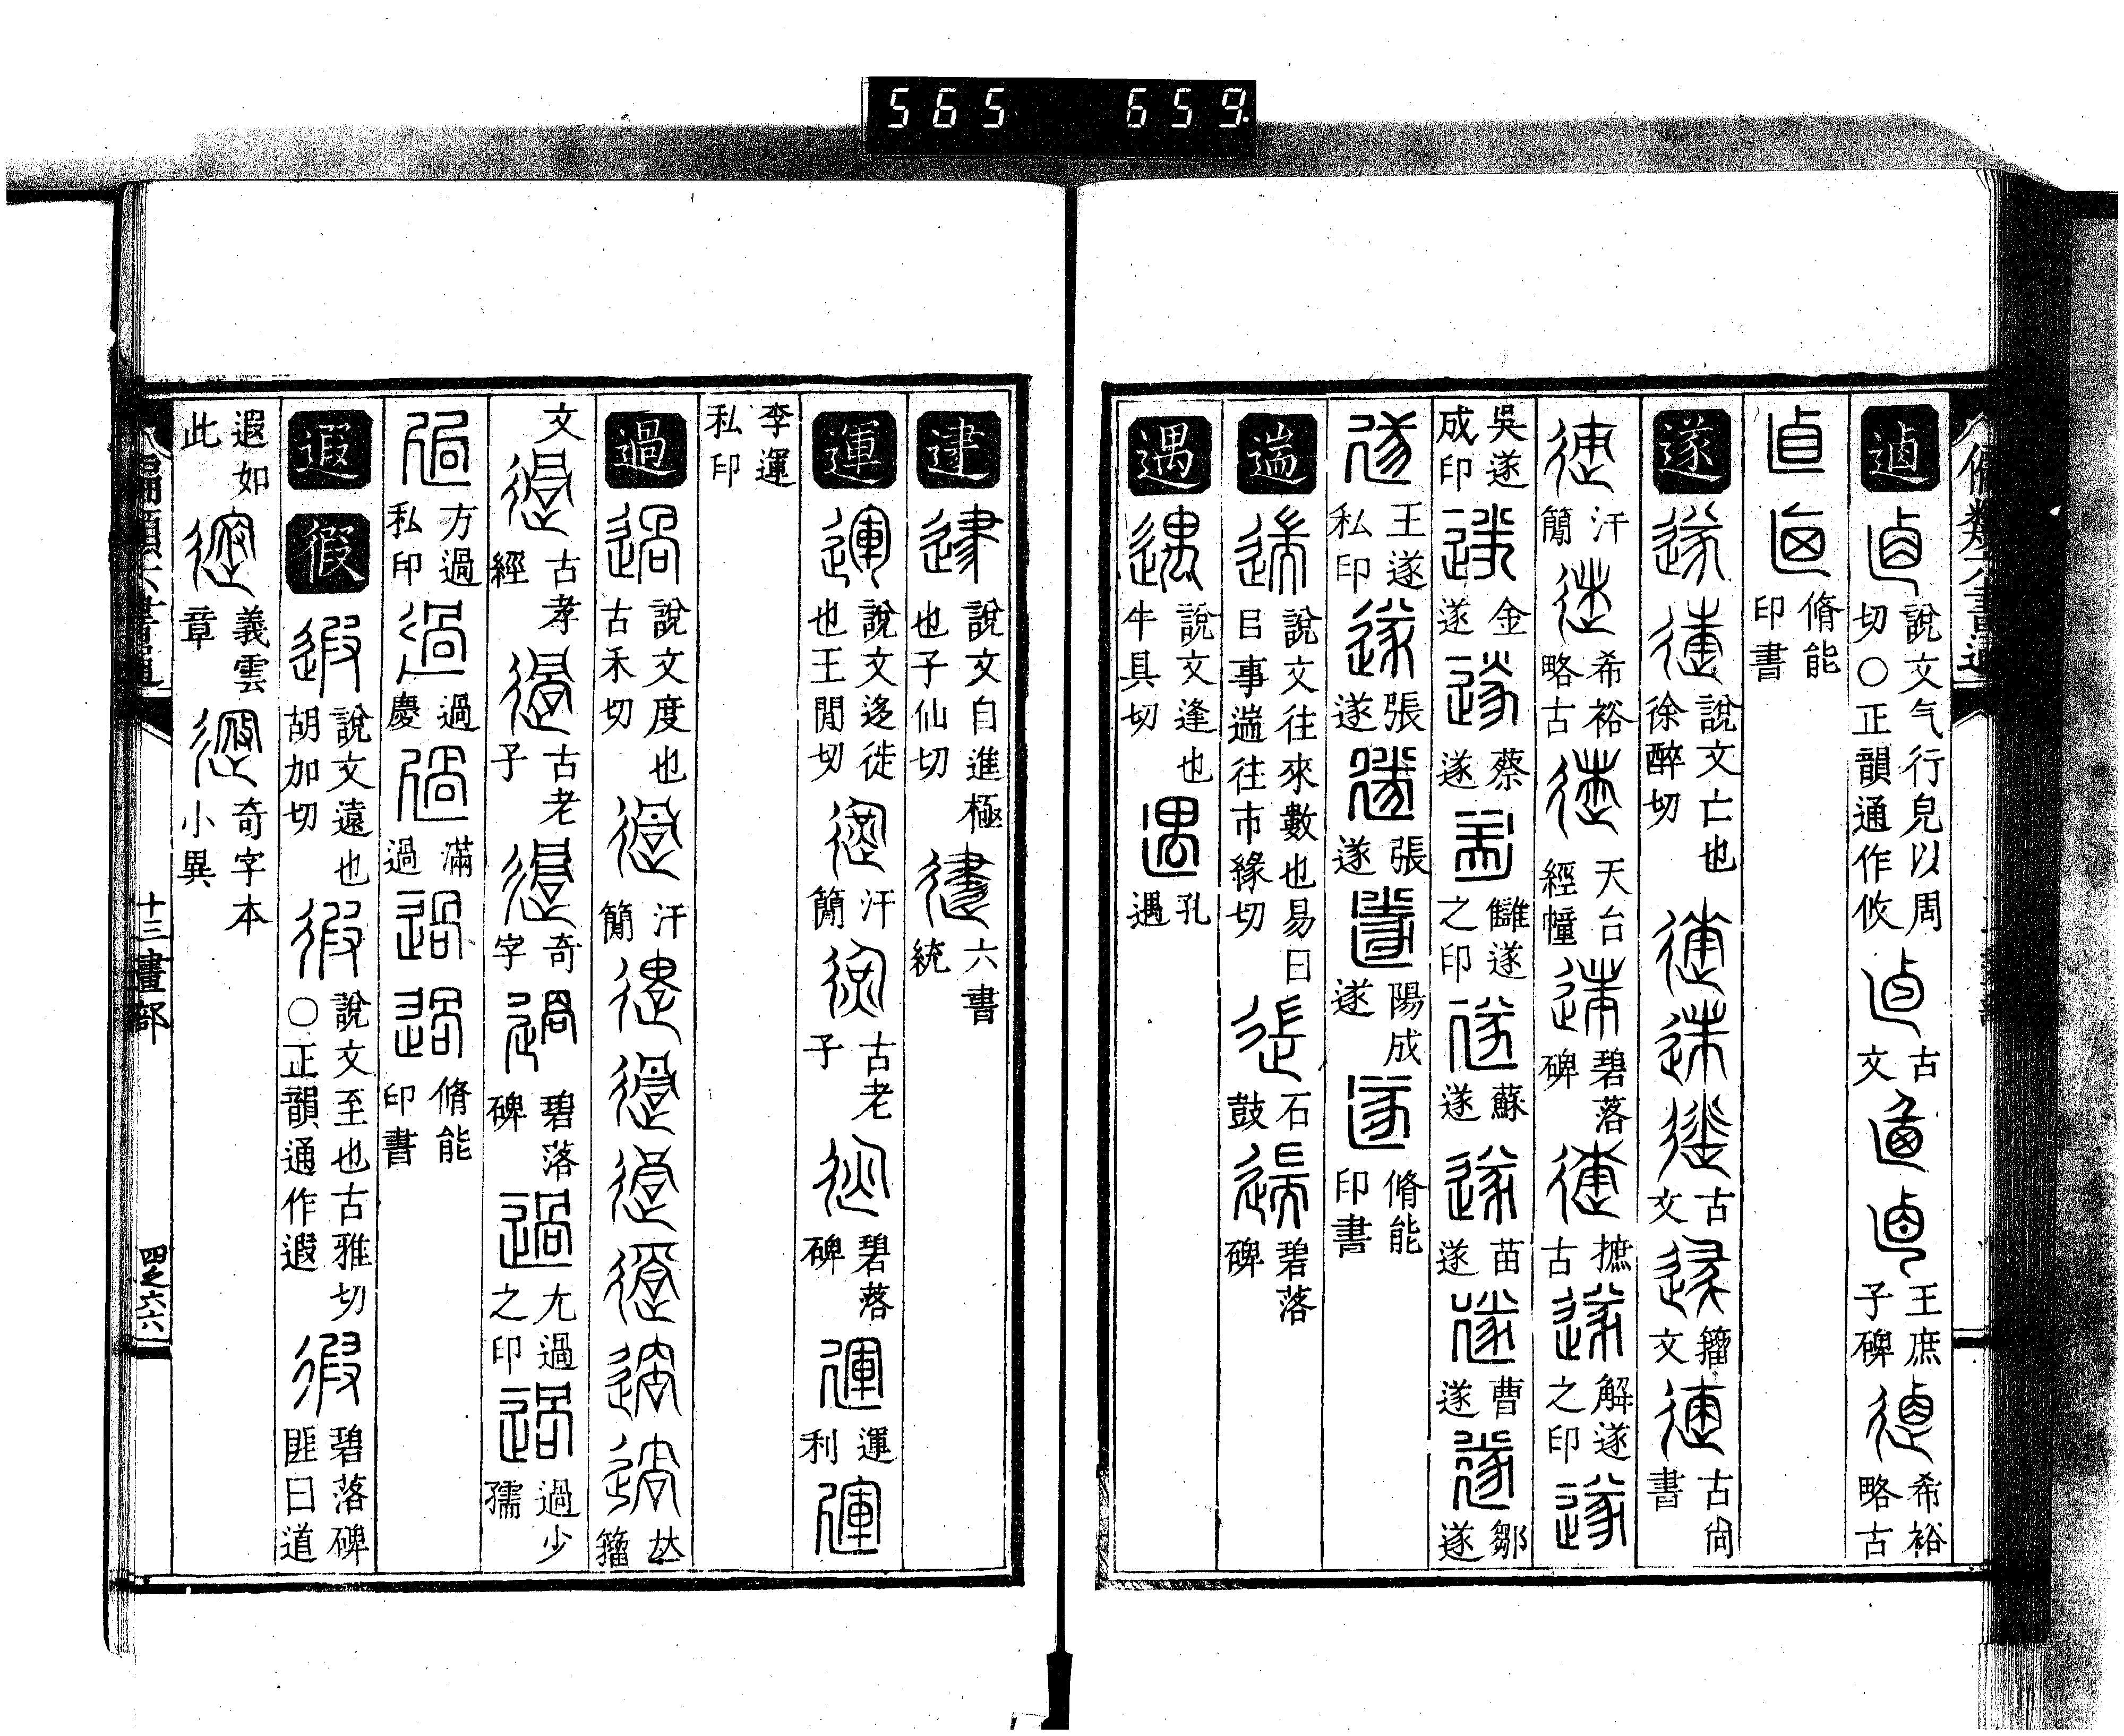 565 659
逌 說文气行皃以周切〇正韻通作攸 古文 王庶子碑 希裕略古
脩能印書
遂 說文亡也徐醉切 古文 籀文 古尙書
汗簡 希裕略古 天台經幢 碧落碑 摭古 解遂之印
吳遂成印 金遂 蔡遂 讎遂之印 蘇遂 苗遂 曹遂 鄒遂
王遂私印 張遂 張遂 陽成遂 脩能印書
遄 說文往來數也易曰㠯事遄往市緣切 石鼓 碧落碑
遇 說文逢也牛具切 孔遇
說文自進極也子仙切 六書統
運 說文迻徙也王閒切 汗簡 古老子 碧落碑 運利
李運私印
過 說文度也古禾切 汗簡 籀
文 古孝經 古老子 奇字 碧落碑 尢過之印 過少孺
方過私印 過慶 滿過 脩能印書
遐 徦 說文遠也胡加切 說文至也古雅切〇正韻通作遐 碧落碑匪曰道
遐如此 義雲章 奇字本小異
十三畫部
四之六六